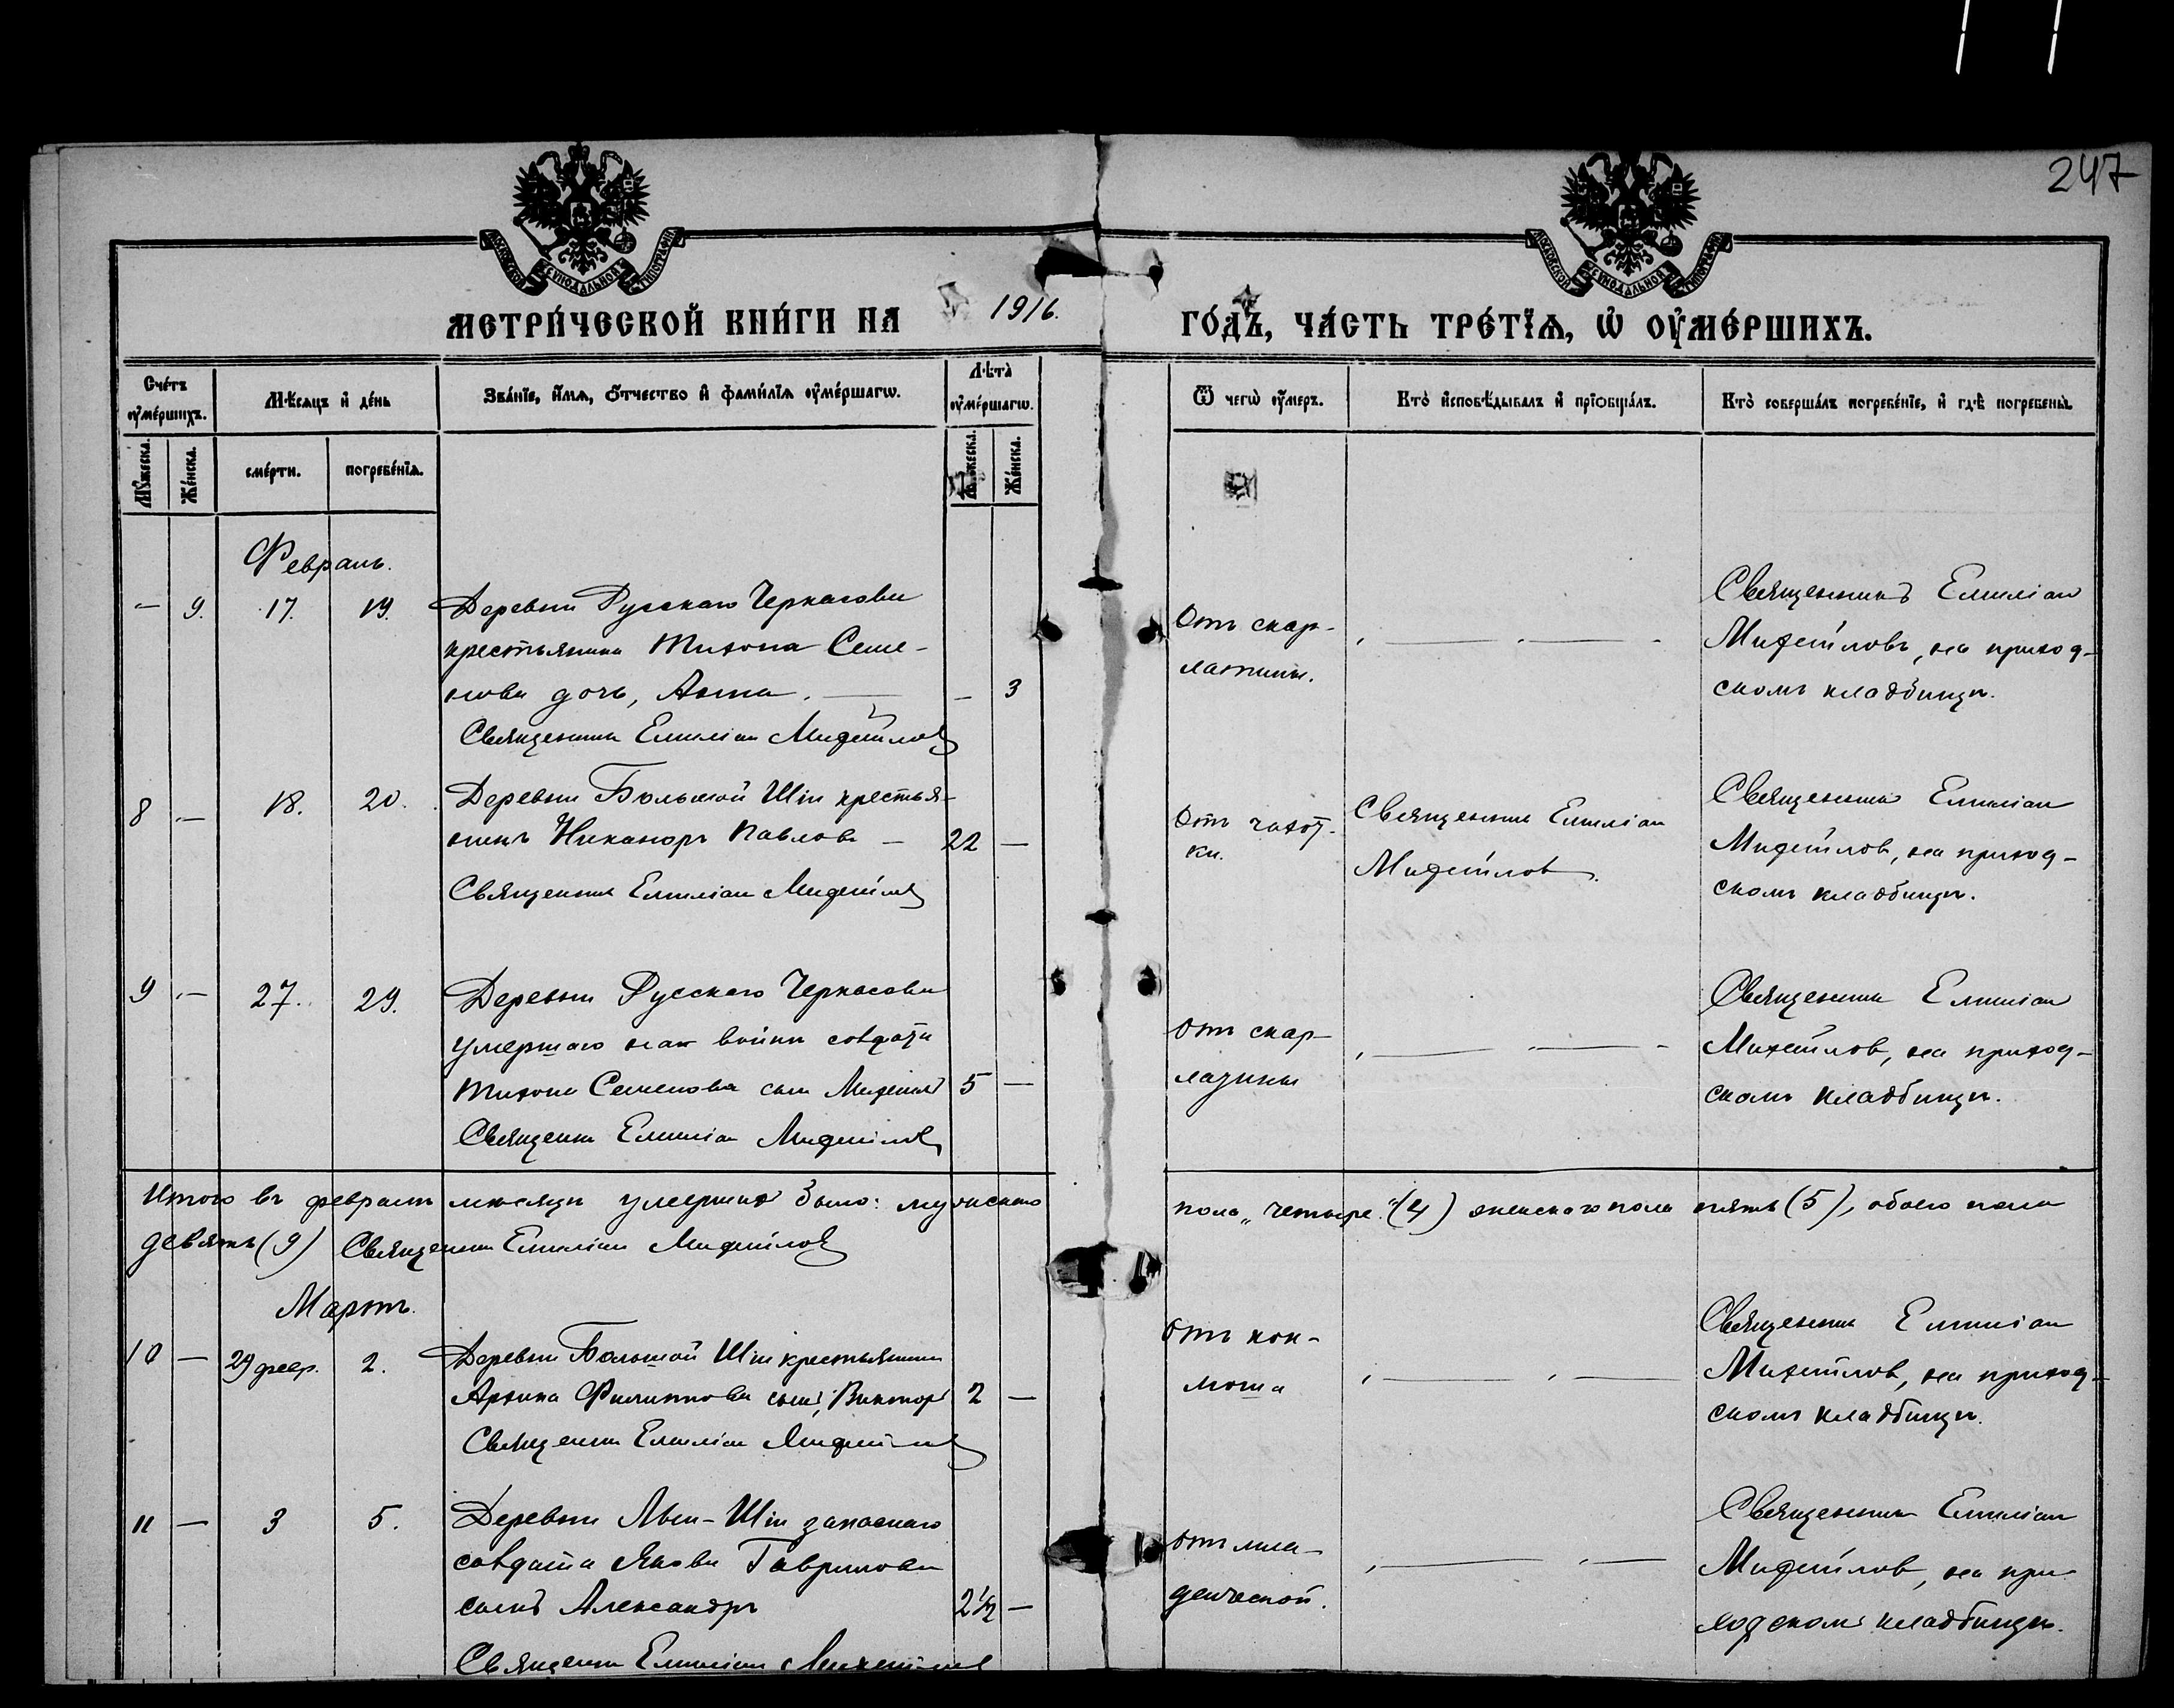 247
МОСКОВСКОЙ СѴНОДАЛЬНОЙ ТИПОГРАФІИ
МОСКОВСКОЙ СѴНОДАЛЬНОЙ ТИПОГРАФІИ
МЕТРИ́ЧЕСКОЙ КНИ́ГИ НА 1916. ГО́ДЪ, ЧА́СТЬ ТРЕ́ТІѦ, Ѡ҆ ОУ҆МЕ́РШИХЪ.
Сче́тъ оу҆ме́ршихъ.
Мѣ́сѧцъ и҆ де́нь
Зва́нїе, и҆́мѧ, ѻ҆́тчество и҆ фами́лїѧ оу҆ме́ршагѡ.
Лѣ́та оу҆ме́ршагѡ.
Ѿ чегѡ̀ оу҆́меръ.
Кто̀ и҆сповѣ́дывалъ и҆ прїѡбща́лъ.
Кто̀ соверша́лъ погребе́нїе, и҆ гдѣ̀ погребены̀.
Мꙋ́жеска.
Же́нска.
сме́рти.
погребе́нїѧ.
Мꙋ́жеска.
Же́нска.
Февраль.
— 9. 17. 19. Деревни Русскаго Черкасова
крестьянина Тихона Семе-
нова дочь, Анна. — 3
Священникъ Емиліан Михайлов
От скар-
латины.
Священникъ Емиліан
Михайловъ, на приход-
скомъ кладбищѣ.
8 — 18. 20. Деревни Большой Шіи крестья-
нинъ Никаноръ Павлов — 22 —
Священник Емиліан Михайлов
Отъ чахот-
ки.
Священник Емиліан
Михайлов.
Священник Емиліан
Михайлов, на приход-
скомъ кладбищѣ.
9 — 27. 29. Деревни Русскаго Черкасова
умершаго на войнѣ солдата
Тихона Семенова сын Михаил 5 —
Священник Емиліан Михайлов
отъ скар-
латины
Священник Емиліан
Михайлов, на приход-
скомъ кладбищѣ.
Итого въ февралѣ мѣсяцѣ умерших было: мужскаго пола „четыре“ (4) женскаго пола пять (5), обоего пола
девять (9) Священник Емиліан Михайлов
Мартъ.
10 — 29 февр. 2. Деревни Большой Шіи крестьянина
Архипа Филиппова сынъ, Виктор 2 —
Священник Емиліан Михайлов
Отъ кок-
люша
Священник Емиліан
Михайлов, на приход-
скомъ кладбищѣ.
11 — 3 5. Деревни Шіи запаснаго
солдата Якова Гаврилова
сынъ Александръ 2½ —
Священник Емиліан Михайлов
отъ мла-
денческой.
Священник Емиліан
Михайлов, на при-
ходском кладбищѣ.